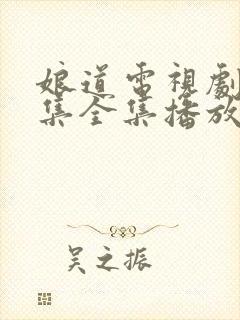 娘道電視劇
集全集播放
吴之振